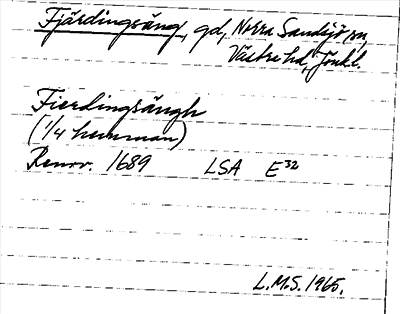 Fjärdingsäng, gd, Norra Sandsjö sn,
Västra hd, Jönk l.
Fierdingsängh
(1/4 hemman)
Renov. 1689 LSA E32
L.M.S. 1965.